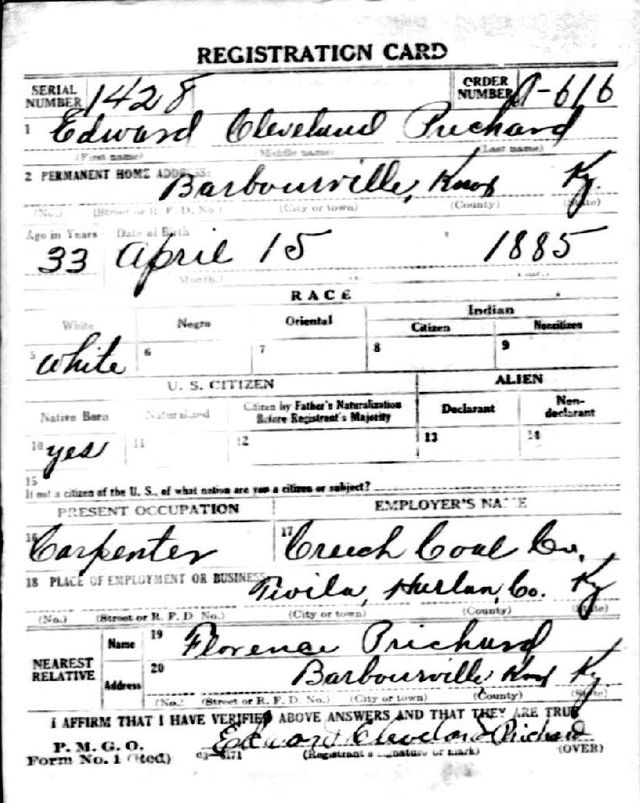 REGISTRATION CARD
SERIAL NUMBER 1428 ORDER NUMBER A-616
1 Edward Cleveland Prichard
(First name) (Middle name) (Last name)
2 PERMANENT HOME ADDRESS:
Barbourville, Knox Ky.
(No.) (Street or R. F. D. No.) (City or town) (County) (State)
Age in Years Date of Birth
33 April 15 1885
(Month.)
RACE
White Negro Oriental Indian
Citizen Noncitizen
5 white 6 7 8 9
U. S. CITIZEN ALIEN
Native Born Naturalized Citizen by Father's Naturalization Before Registrant's Majority Declarant Non-declarant
10 yes 11 12 13 14
15
If not a citizen of the U. S., of what nation are you a citizen or subject?
PRESENT OCCUPATION EMPLOYER'S NAME
16 Carpenter 17 Creech Coal Co.
18 PLACE OF EMPLOYMENT OR BUSINESS
Twila, Harlan, Co. Ky
(No.) (Street or R. F. D. No.) (City or town) (County) (State)
NEAREST RELATIVE
Name 19 Florence Prichard
Address 20 Barbourville Knox Ky
(No.) (Street or R. F. D. No.) (City or town) (County) (State)
I AFFIRM THAT I HAVE VERIFIED ABOVE ANSWERS AND THAT THEY ARE TRUE
Edward Cleveland Prichard
P. M. G. O.
Form No. 1 (Red) (Registrant's signature or mark) (OVER)